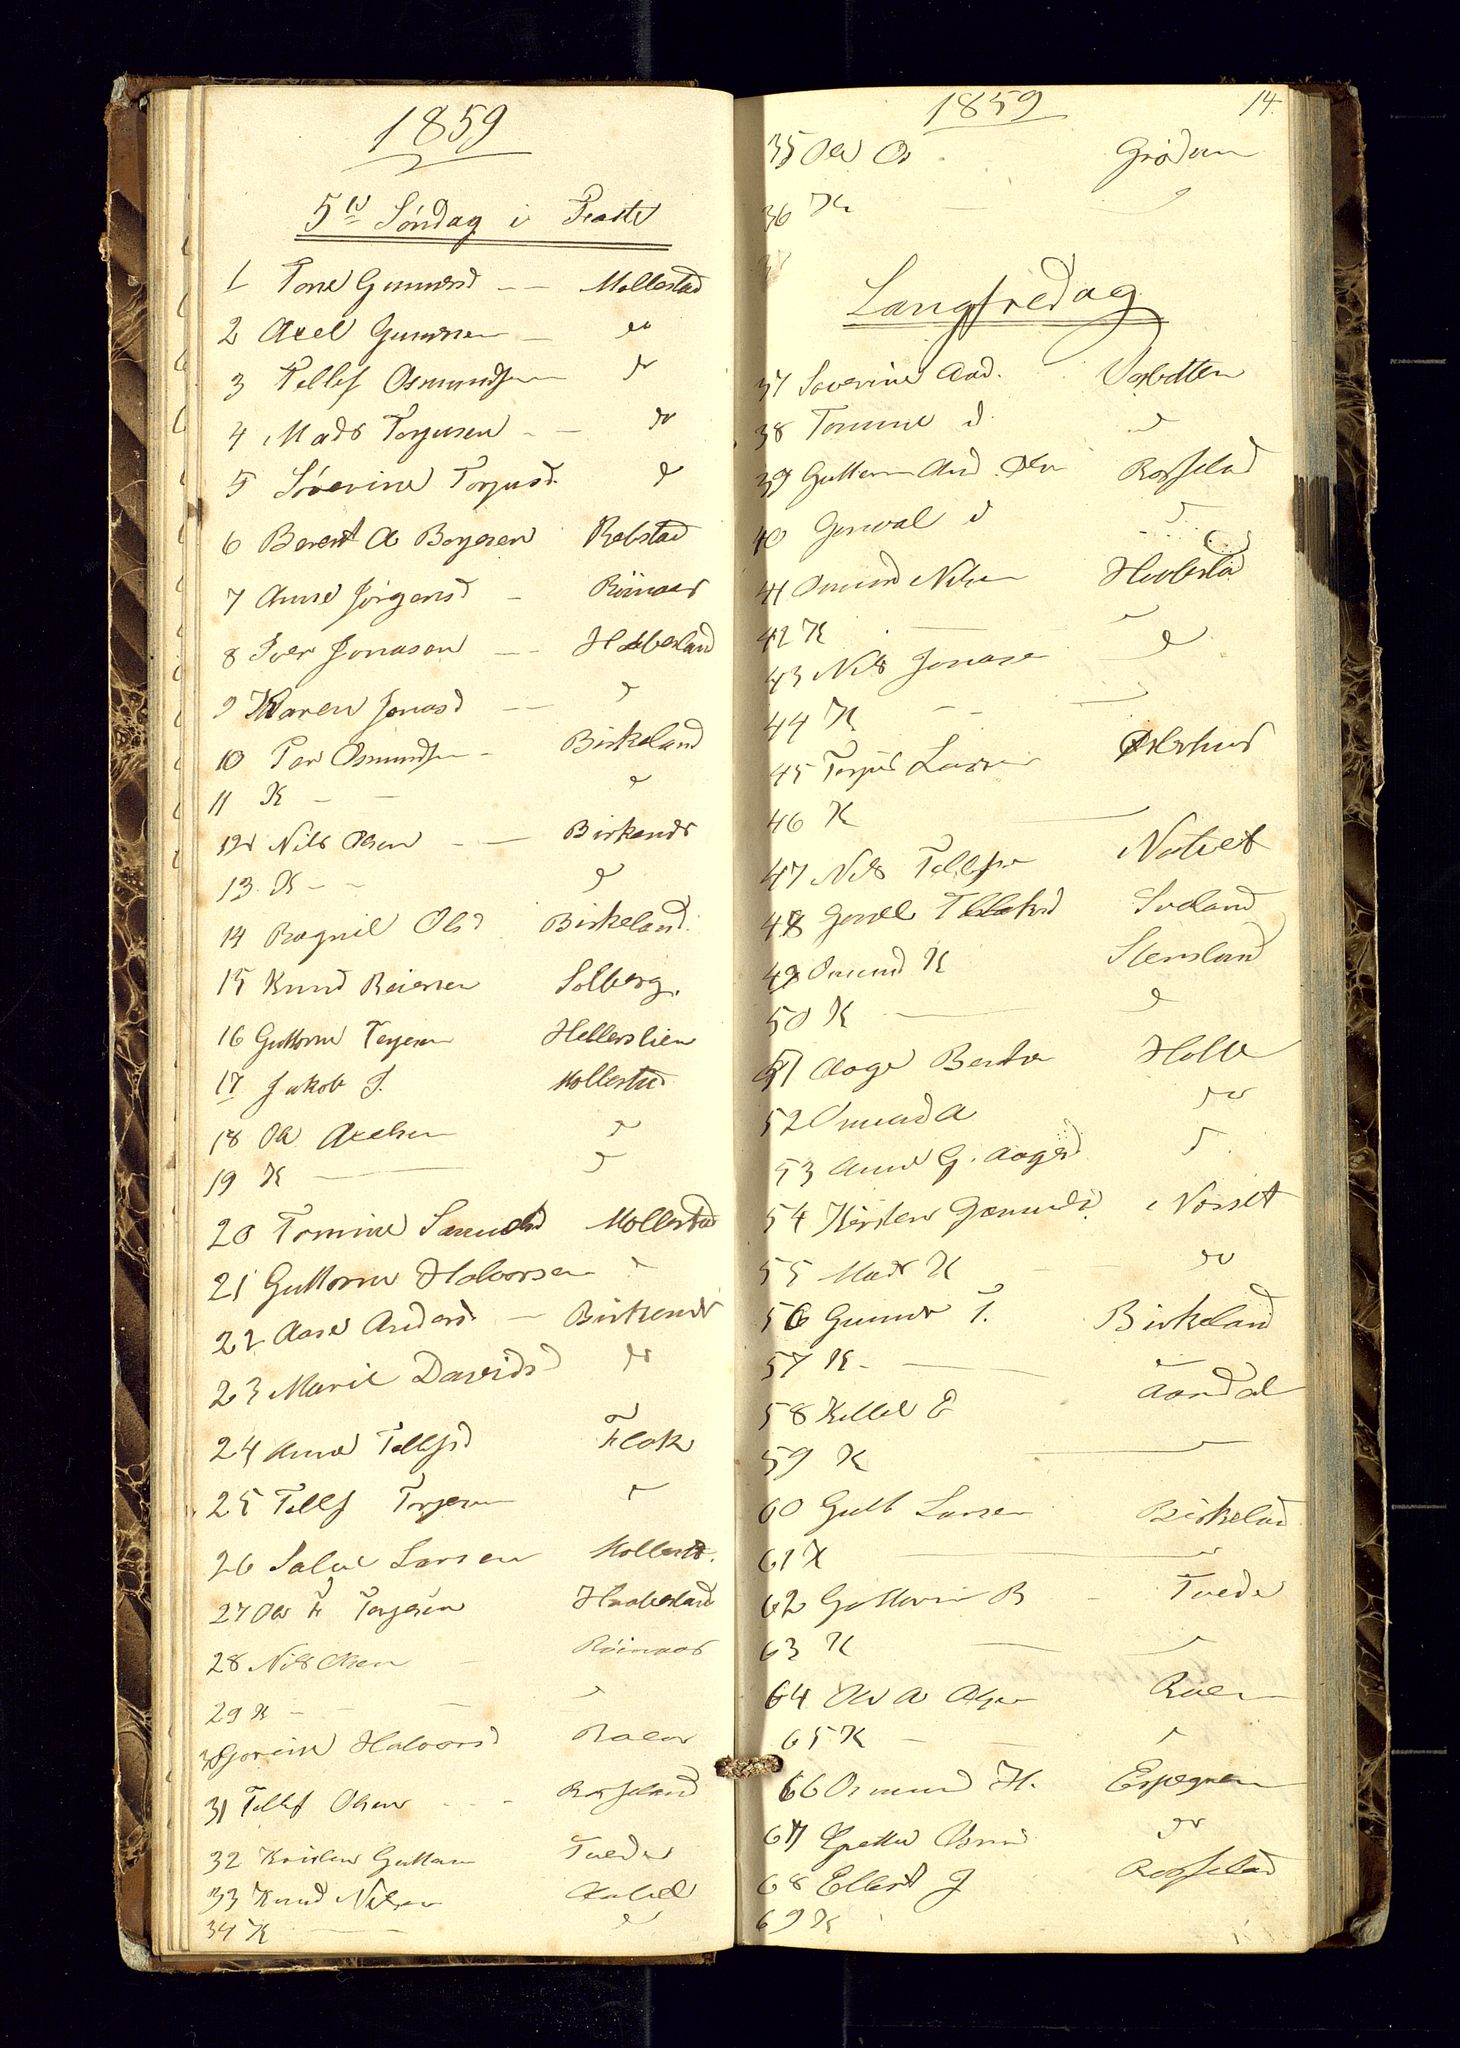 1859
5te Søndag i Faste
1 Tone Gunnersd -- Mollestad
2 Axel Gunnersen - do
3 Tellef Osmundsen do
4 Mads Torjusen - - do
5 Severine Torjusd. do
6 Berent A Börgesen Rebstad
7 Anne Jørgensd - Röinaas
8 Iver Jonasen -- Haabesland
9 Karen Jonasd -- d
10 Per Osmundsen - Birkeland
11 K - - d
12 Nils Olsen - - Birkenes
13. K - - d
14 Ragnil Olsd Birkeland.
15 Knud Reiersen Solberg.
16 Guttorm Terjesen Hellerslien
17 Jakob J. Mollestad
18 Ole Axelsen d
19 K — d
20 Tomine Samuelsd Mollestad
21 Guttorm Halvorsen d
22 Aase Andersd - Birkenes
23 Marie Davidsd do
24 Anne Tellefsd Flak
25 Tellf Torjesen d
26 Salve Larsen Mollestd.
27 Ole T Terjesen Haabesland
28 Nils Olsen - Röinaas
29 K - - d
30 Gorine Halvorsd Raaen
31 Tellef Olsen - - - Rosseland
32 Kristen Guttorm Tvede
33 Knud Nilsen
34 K - - d
1859 14
35 Ole Os Grødum
36 K — d
Langfredag
37 Severine Aad.
38 Tomine d d
39 Guttorm And. Rosselad
40 Gunval d d
41 Omund Nilsen Haabeslad
42 K —
43 Nils Jonase d
44 K - -
45 Torjus Larsen
46 K —
47 Nils Tellefsen Natvet
48 Sveland
49 Omund K Stensland
50 K — d
51 Aage Bento Holte
52 Omund A do
53 Anne G. Aagesd d
54 Kirsten Gunnulsd. Norset
55 Mads K - do
56 Gunner T. Birkeland
57 K - —
58 Kittel E Aandal
59 K —
60 Gutt Larsen Birkelad
61 K —
62 Guttorm B - Tvede
63 K —
64 Ole A Raaen
65 K - - d
66 Osmund H. Espegren
67 do
68 Ellert J Rosselad
69 K